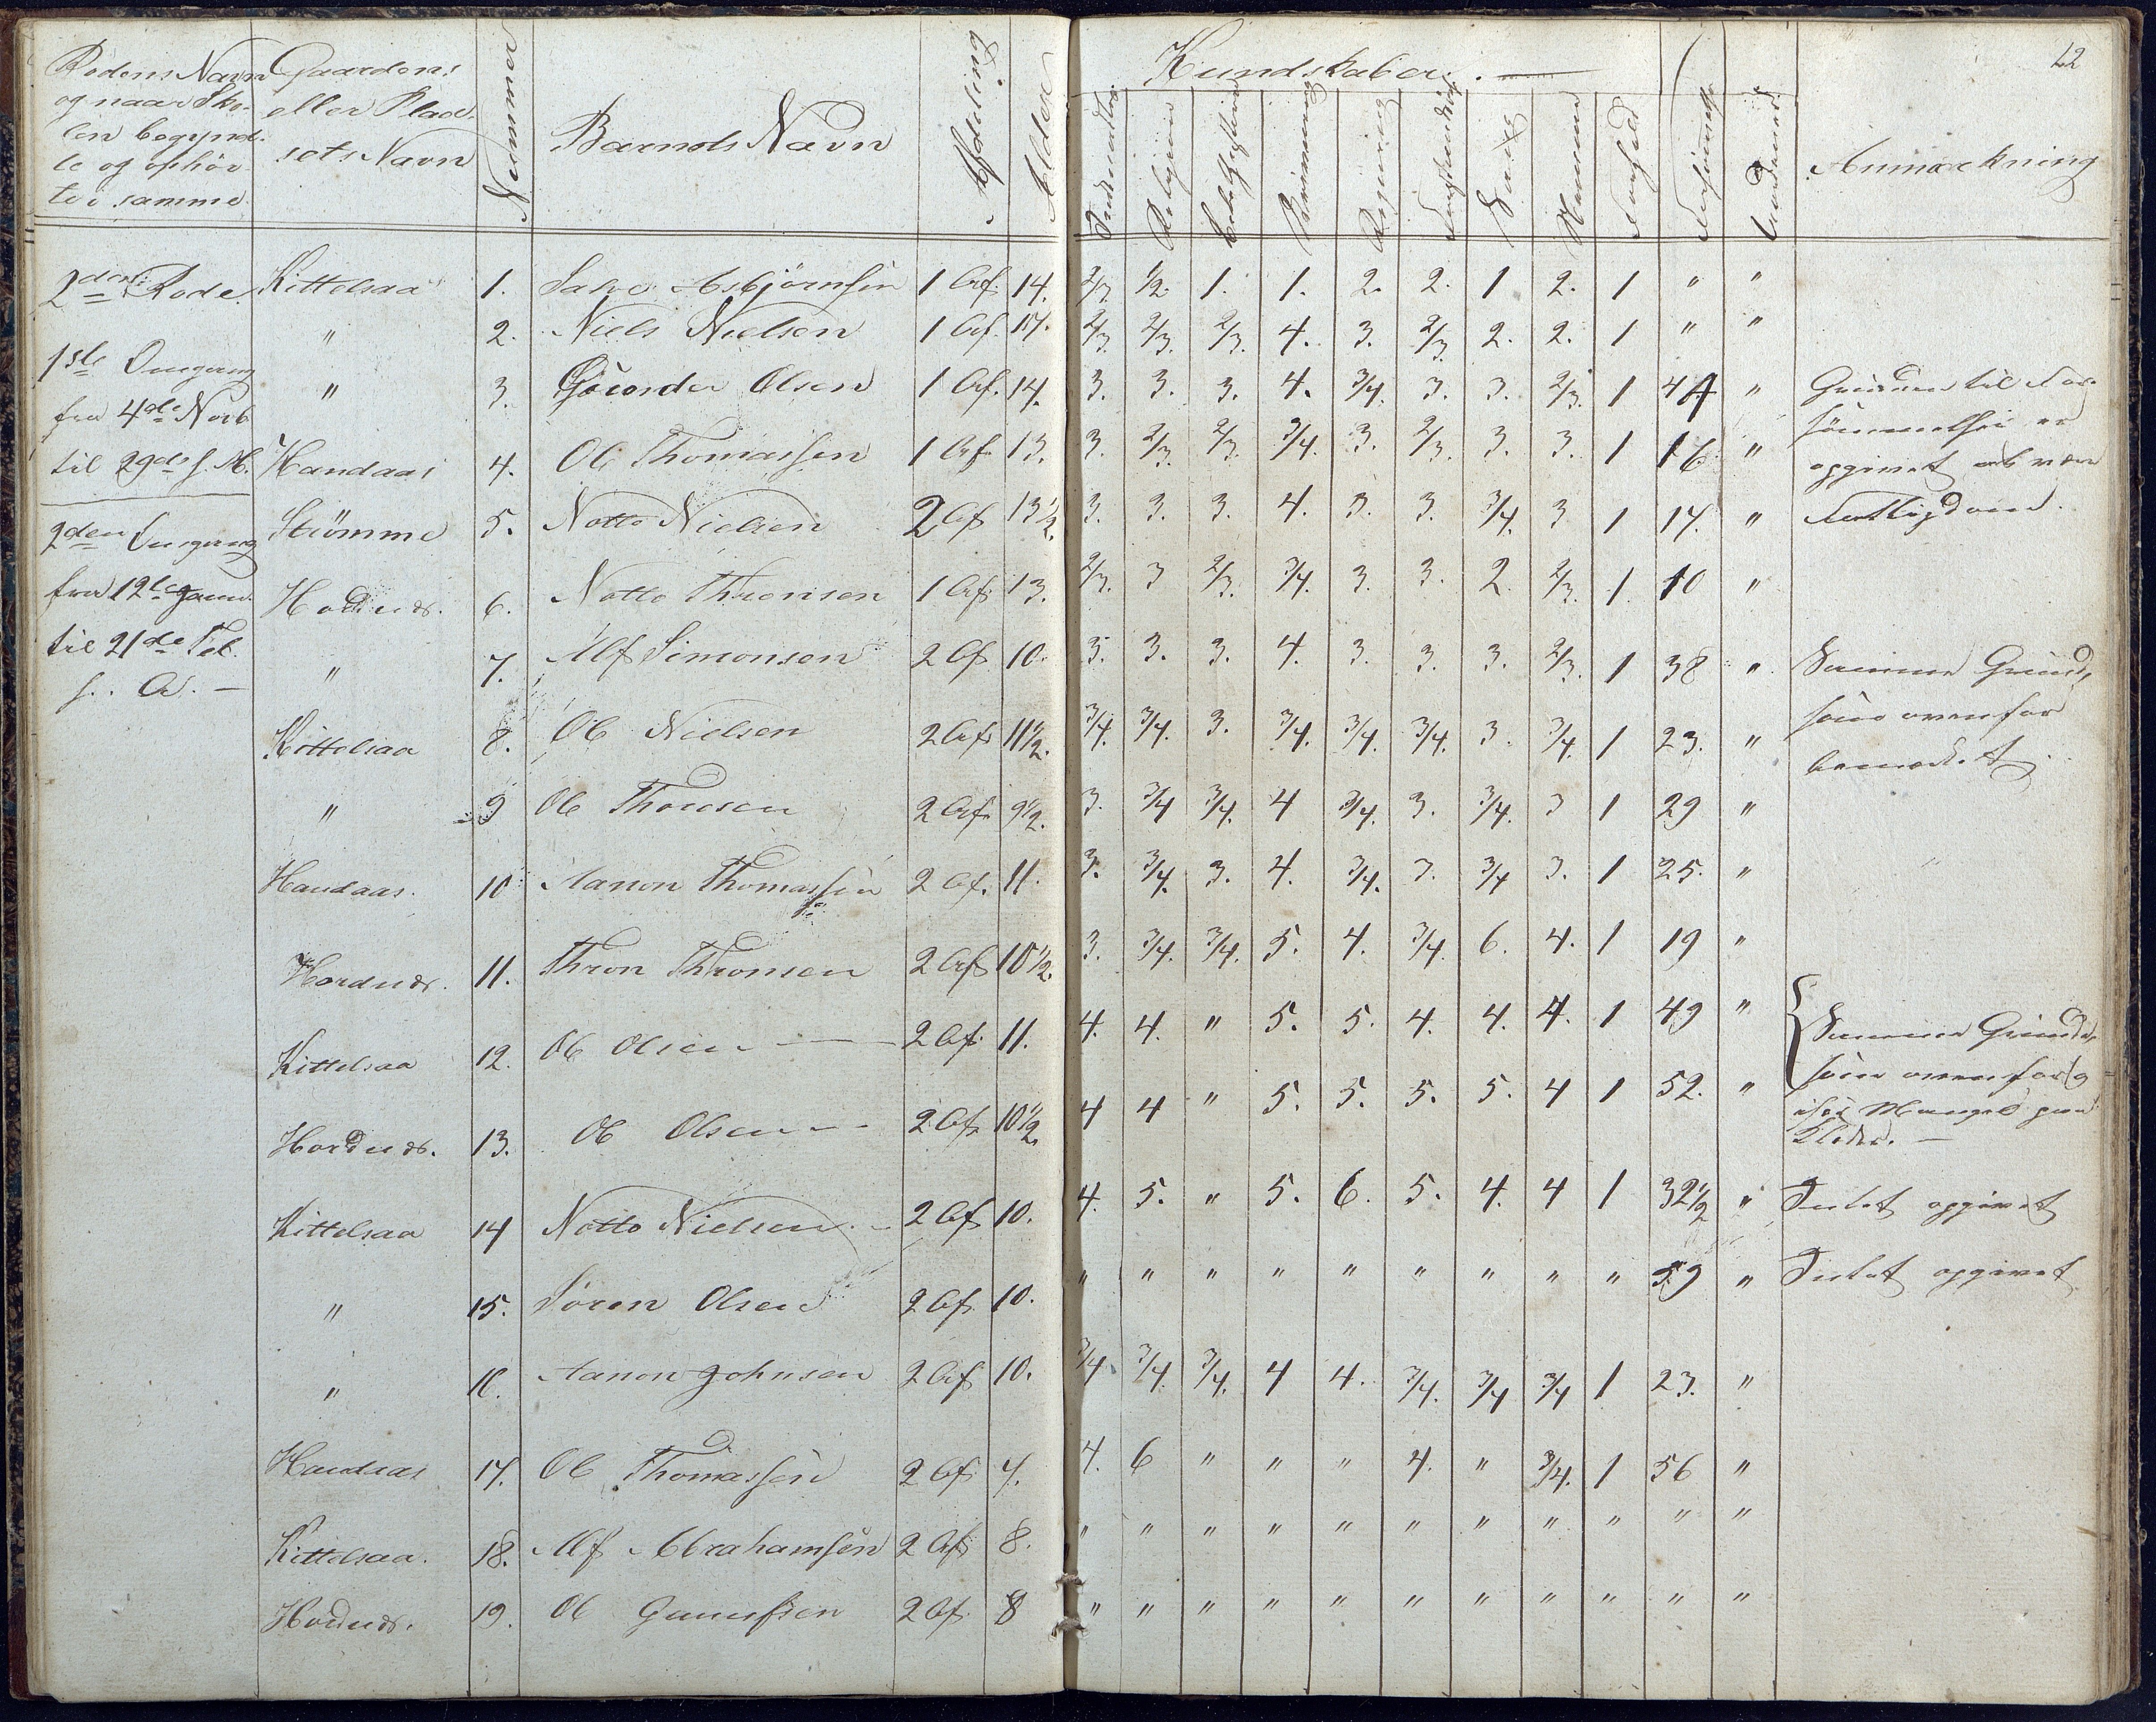 12
Rodens Navn
og naar Sko-
len begynd-
te og ophør-
te i samme
Gaardens
eller Plad-
sets Navn
Nummer
Barnets Navn
Afdeling
Alder
Kundskaber.
Religion
Skrivning
Regning
Sang
Nemme
Forhold
Forsømmelse
Anmærkning
2den Rode Kittelsaa 1. Salve Asbjörnsen 1 Af. 14. 2/3 1/2. 1. 1. 2. 2. 1 2. 1 " "
" 2. Niels Nielsen 1 Af. 14. 2/3. 2/3. 2/3. 4. 3. 2/3. 2. 2. 1 " "
1ste Omgang
" 3. Olsen 1 Af. 14. 3. 3. 3. 4. 3/4. 3. 3. 2/3. 1 44 " Grunden til For-
fra 4de Novb
sömmelsen er
til 29de s. M. Handaas 4. Ole Thomassen 1 Af. 13. 3. 2/3. 2/3. 3/4. 3. 2/3. 3. 3. 1 16 " opgivet at være
2den Omgang Strömme 5. Notto Nielsen 2 Af 13 1/2. 3. 3. 3. 4. 3. 3. 3/4. 3 1 17. " Fattigdom.
fra 12te Janu. Hodnæs. 6. Notto Thronsen 1 Af. 13. 2/3. 3 2/3. 3/4. 3. 3. 2. 2/3. 1. 10 "
til 21de Feb.
s. A. —
" 7. Alf Simonsen 2 Af 10. 3. 3. 3. 4. 3. 3. 3. 2/3. 1 38 " Samme Grund,
som ovenfor
Kittelsaa 8. Ole Nielsen 2 Af. 11 1/2. 3/4. 3/4. 3. 3/4. 3/4. 3/4. 3. 3/4. 1 23. " bemærket.
" 9 Ole 2 Af. 9 1/2. 3. 3/4 3/4. 4 3/4. 3. 3/4. 3 1 29 "
Handaas. 10 Aanon Thomassen 2 Af. 11. 3. 3/4. 3. 4. 3/4. 3. 3/4 3. 1 25. "
Hordnæs. 11. Thron Thronsen 2 Af 10 1/2. 3. 3/4. 3/4. 5. 4. 3/4. 6. 4. 1 19 "
Kittelsaa 12. Ole Olsen — 2 Af. 11. 4. 4. " 5. 5. 4. 4. 4. 1 49 " Samme Grund,
som ovenfor og
Hordnæs. 13. Ole Olsen 2 Af. 10 1/2. 4 4 " 5. 5. 5. 5. 4 1 52. " især Mangel paa
Klæder. —
Kittelsaa 14 Notto Nielsen — 2 Af 10. 4. 5. " 5. 6. 5. 4. 4 1 32 1/2 " Intet opgivet
" 15. Sören Olsen 2 Af. 10. " " " " " " " " " 59 " Intet opgivet
" 16. Aanon Johnsen 2 Af 10. 3/4. 3/4. 3/4. 4 4. 3/4. 3/4 3/4 1 23. "
Handaas 17. Ole Thomassen 2 Af. 7. 4. 6 " " " 4. " 3/4. 1 56 "
Kittelsaa. 18. Alf Abrahamsen 2 Af. 8. " " " " " " " " " " "
Hodnæs. 19. Ole 2 Af. 8 " " " " " " " " " " "